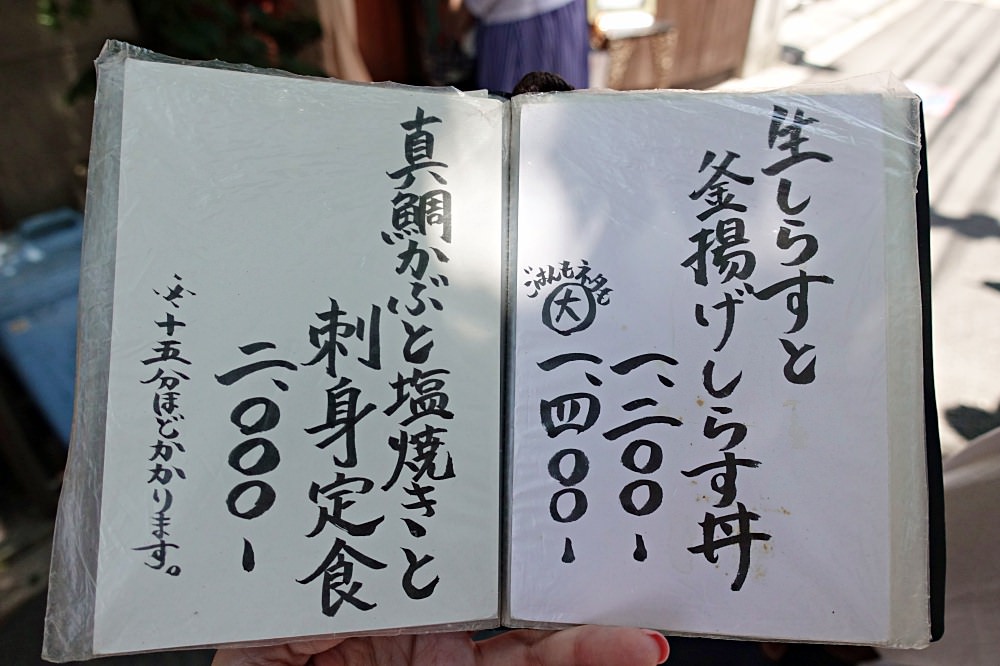 生しらすと
釜揚げしらす丼
一、二〇〇-
ごはんもネタも
大
一、四〇〇-
真鯛かぶと塩焼きと
刺身定食
二、〇〇〇-
※十五分ほどかかります。